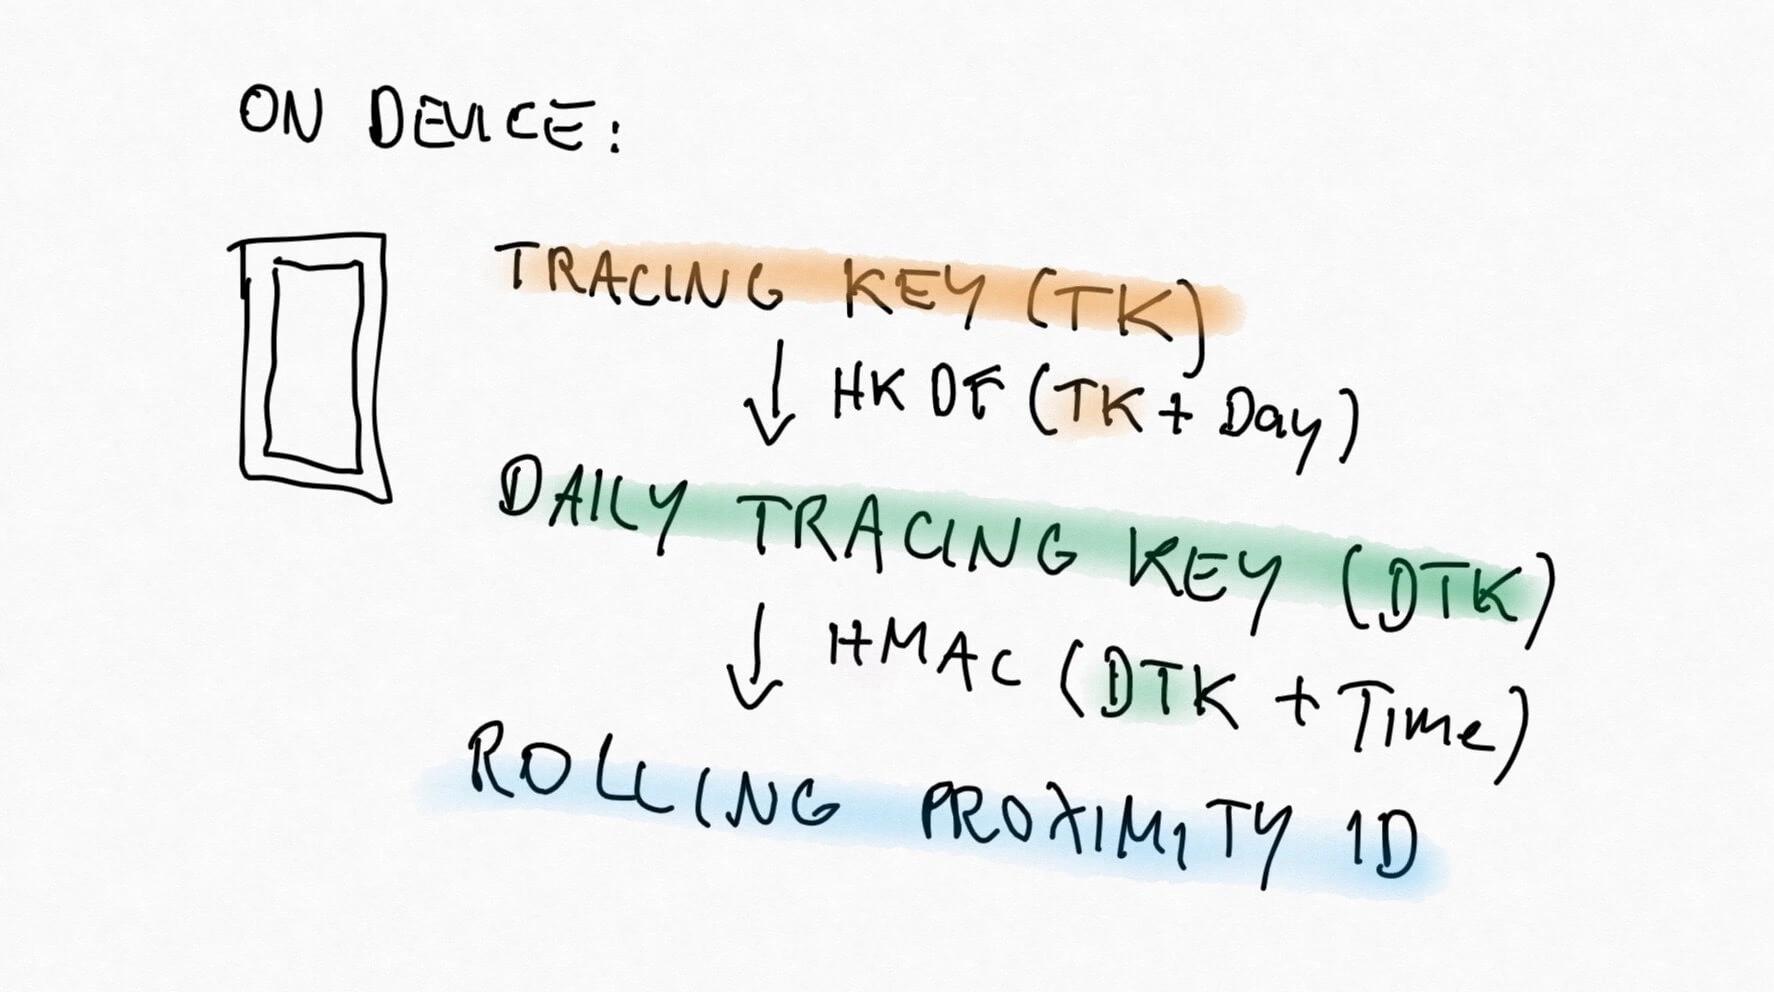 ON DEVICE:
TRACING KEY (TK)
HKDF (TK + Day)
DAILY TRACING KEY (DTK)
HMAC (DTK + Time)
ROLLING PROXIMITY ID